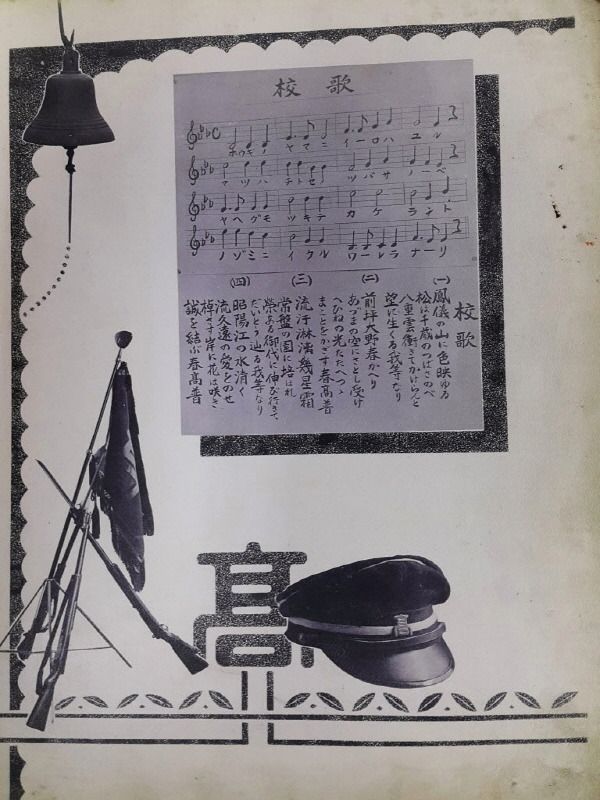 校歌
ホウギノ ヤマニ イーロハ ユル
マツハ チトセ ツバサ ノーベ
ヤヘグモ ツキテ カケ ラント
ノゾミニ イクル ワーレラ ナーリ
校歌
(一)
鳳儀の山に色映ゆる
松は千歳のつばさのべ
八重雲衝きてかけらんと
望に生くる我等なり
(二)
前坪大野春かへり
あづまの空にさとし受け
の光たたへつゝ
まことをかざす春高普
(三)
流汗淋漓幾星霜
常盤の園に培はれ
榮ある御代に伸び行きて
だいとう辿る我等なり
(四)
昭陽江の水清く
流久遠の愛をのせ
棹さす岸に花は咲き
誠を結ぶ春高普
髙